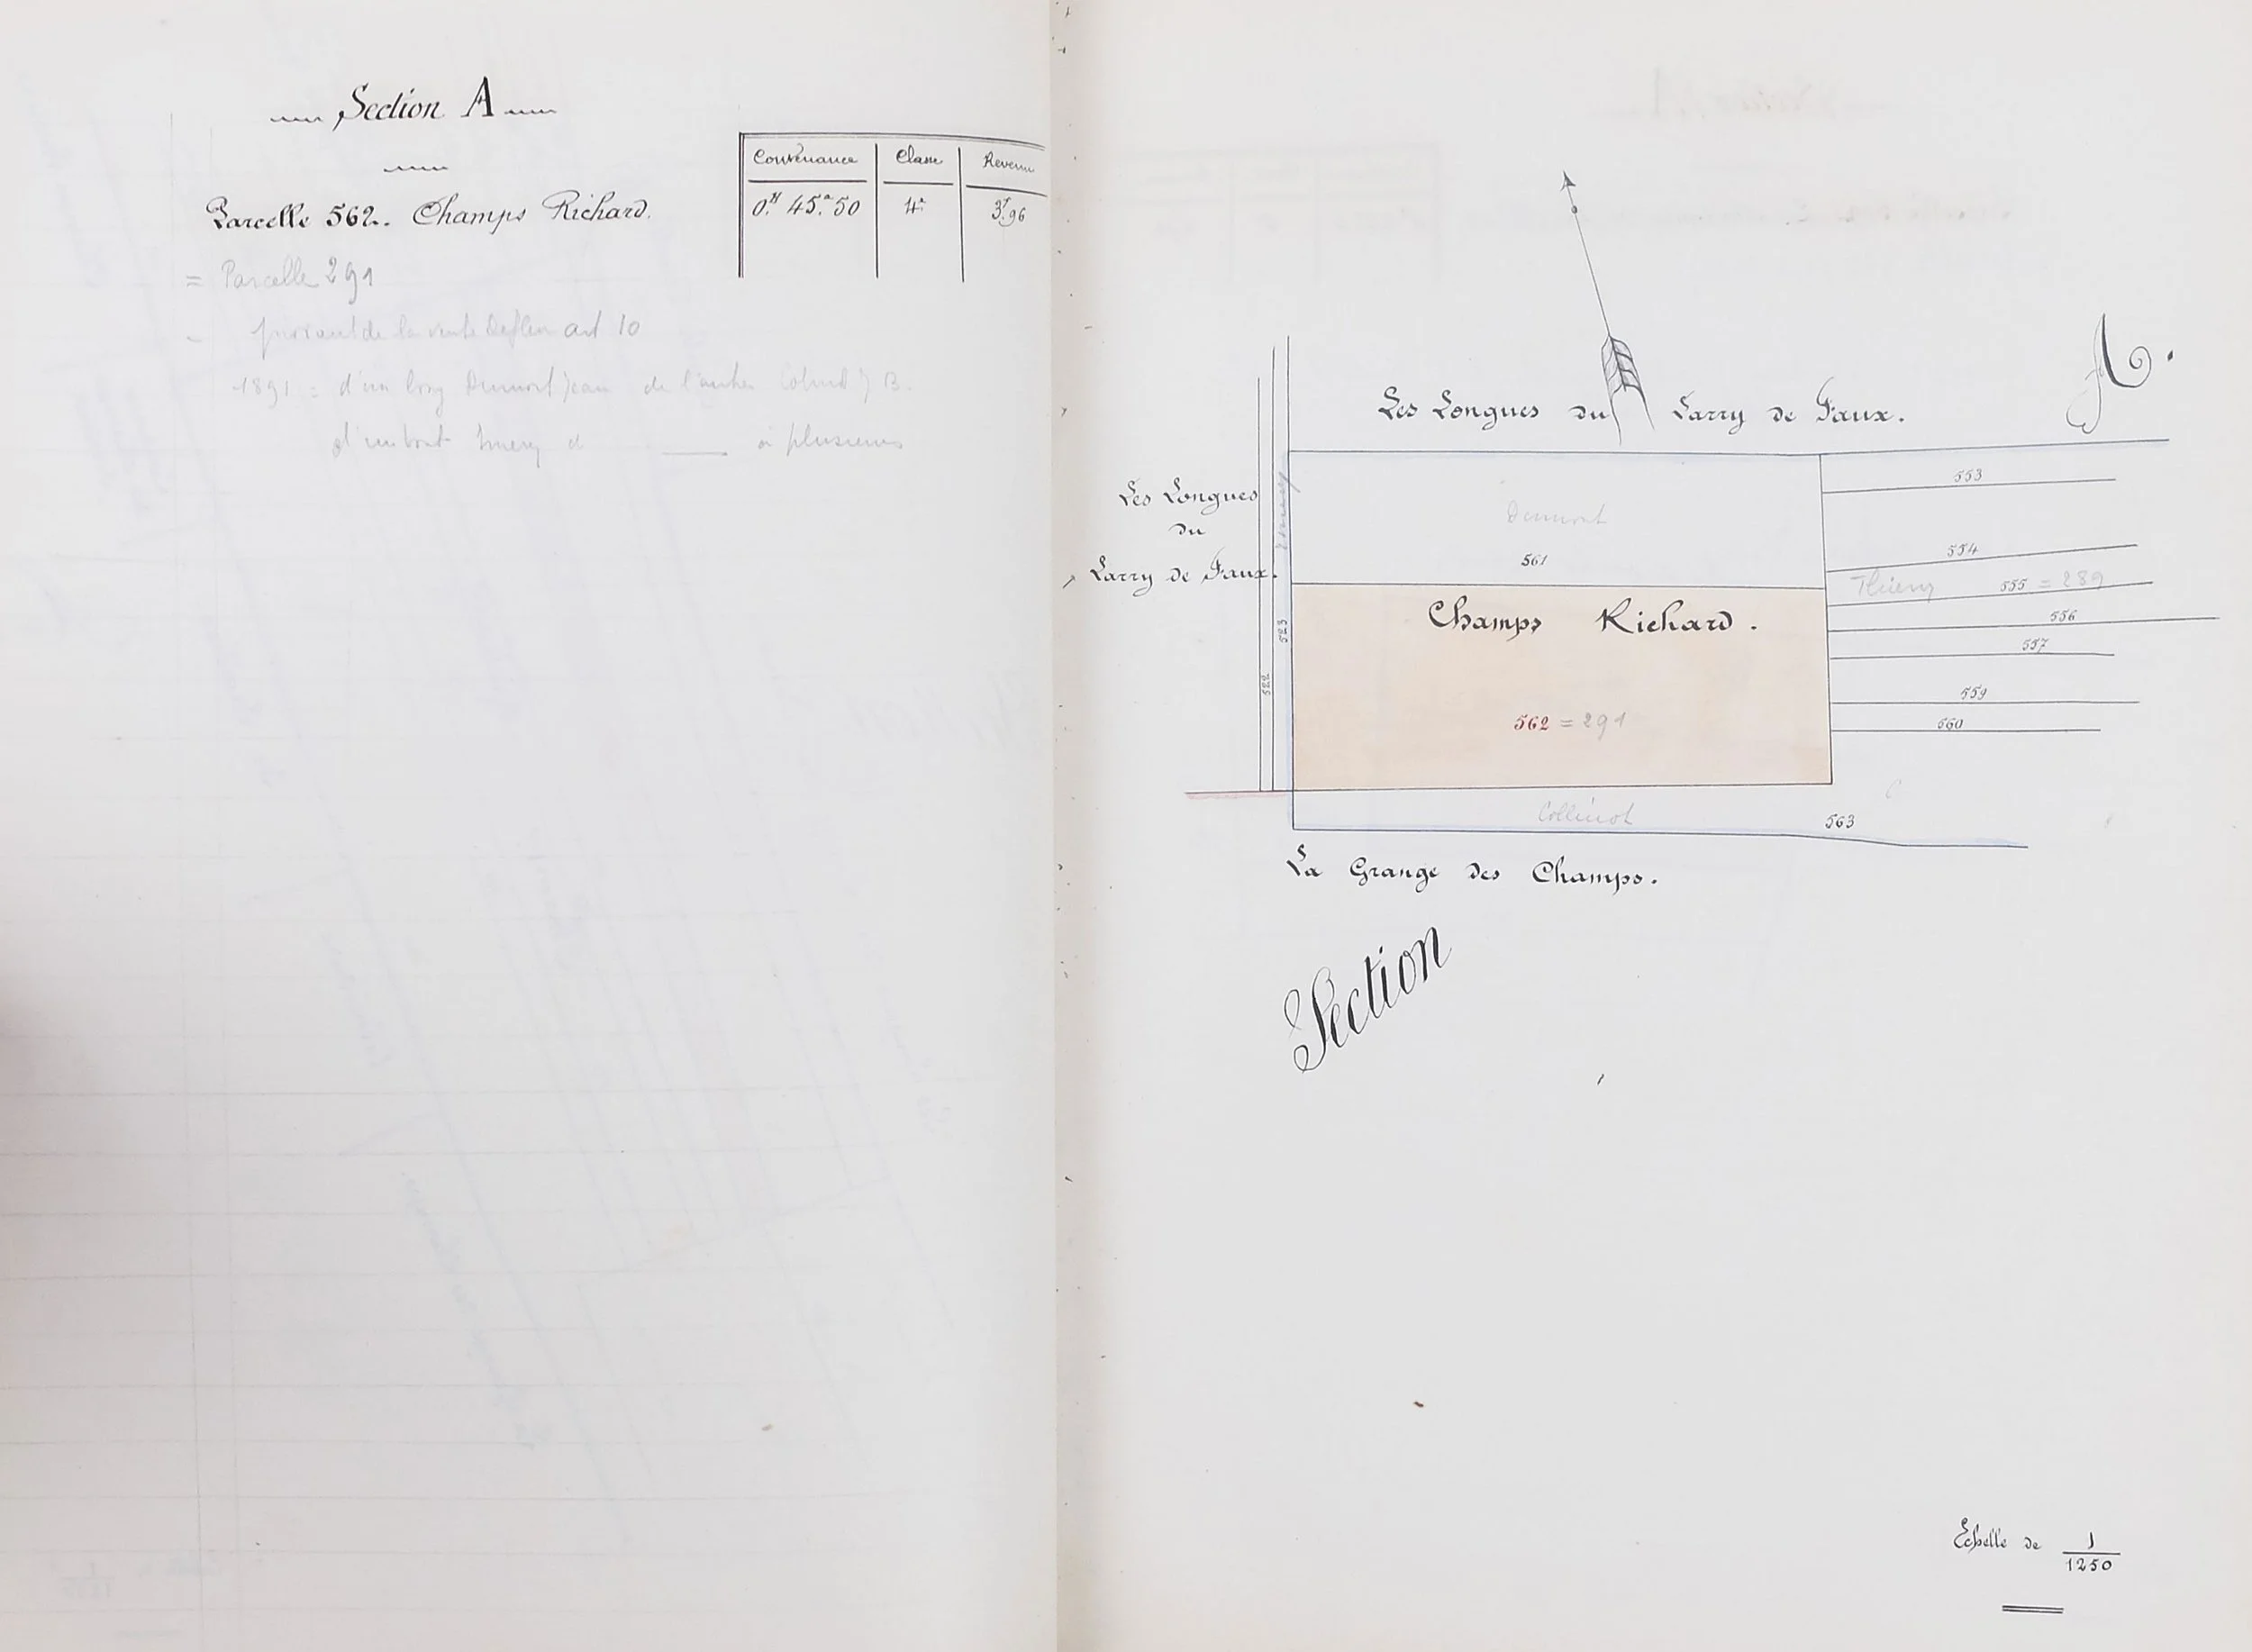 Section A
Parcelle 562. Champs Richard.
Contenance Classe Revenu
0.H 45.a 50 4e 3.f 96
= Parcelle 291
provant de la vente art 10
1891 = d'un long Dumont Jean de l'autre B.
d'un bout Thierry et à plusieurs
A.
Les Longues du Larry de Faux.
Les Longues
du
Larry de Faux.
553
Dumont
554
561
Thierry 555 = 289
556
Champs Richard.
557
523
522
559
562 = 291
560
Collinot
563
La Grange des Champs.
Section
Echelle de 1
1250